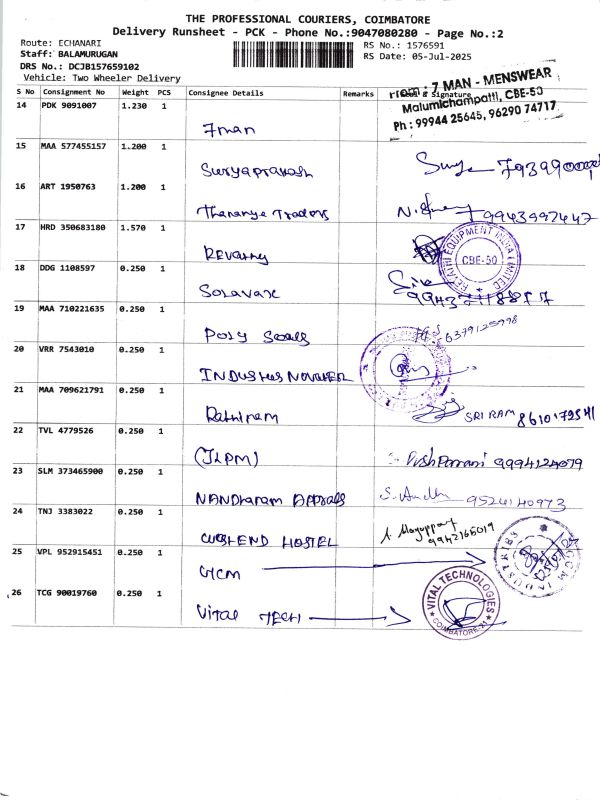 THE PROFESSIONAL COURIERS, COIMBATORE
Delivery Runsheet - PCK - Phone No.:9047080280 - Page No.:2
Route: ECHANARI
RS No.: 1576591
Staff: BALAMURUGAN
RS Date: 05-Jul-2025
DRS No.: DCJB157659102
Vehicle: Two Wheeler Delivery
S No Consignment No Weight PCS Consignee Details Remarks & Signature
7 MAN - MENSWEAR
Malumichampatti, CBE-50
Ph : 99944 25645, 96290 74717
14 PDK 9091007 1.230 1
7man
15 MAA 577455157 1.200 1
Suryaprakash
16 ART 1950763 1.200 1
Thananya Traders 9943997447
17 HRD 350683180 1.570 1
REVATHI EQUIPMENT INDIA LIMITED
CBE-50
Revathy
18 DDG 1108597 0.250 1
19 MAA 710221635 0.250 1
Poly Seals 6379125998
20 VRR 7543010 0.250 1
21 MAA 709621791 0.250 1
Rathinam SRI RAM
22 TVL 4779526 0.250 1
(JLPM) 9994124079
23 SLM 373465900 0.250 1
9524140973
24 TNJ 3383022 0.250 1
HOSTEL 9942165019
25 VPL 952915451 0.250 1
GCM
26 TCG 90019760 0.250 1
Vital TECH
VITAL TECHNOLOGIES
COIMBATORE-21